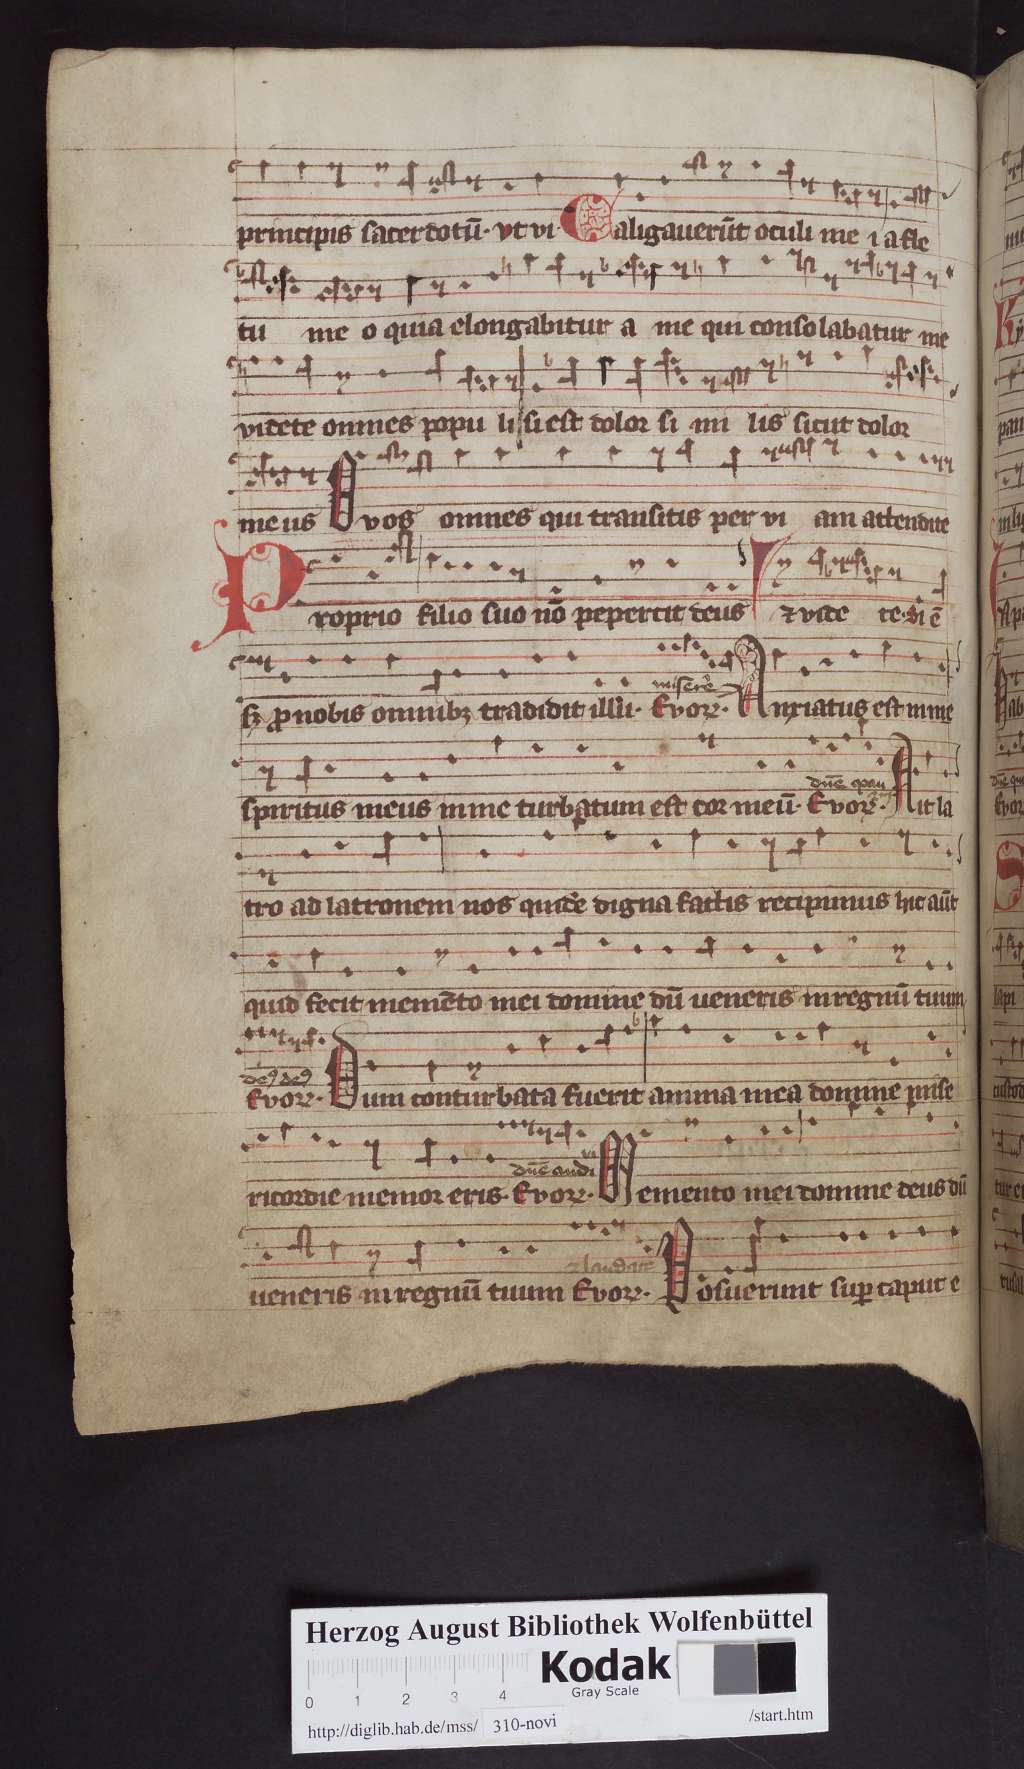 principis sacerdotū· vt vi· Caligauerūt oculi me i a fle
tu me o quia elongabitur a me qui consolabatur me
videte omnes popu li si est dolor si mi lis sicut dolor
me us O vos omnes qui transitis per vi am attendite
Proprio filio suo nō pepercit deus ⁊ vide te· Si ē
misere
ꝓ nobis omnibꝫ tradidit illū· Evoꝝ· Anxiatus est in me
spiritus meus in me turbatum est cor meū· Evoꝝ· Ait la
tro ad latronem nos quidē digna factis recipimus hic aūt
quid fecit memēto mei domine dū ueneris in regnū tuum
deꝰ deꝰ
Evoꝝ· Dum conturbata fuerit anima mea domine mise
dn̄e audi
ricordie memor eris· Evoꝝ· Memento mei domine deus dū
⁊ laudate
ueneris in regnū tuum Evoꝝ· Posuerunt suꝑ caput e
Herzog August Bibliothek Wolfenbüttel
Kodak
Gray Scale
0 1 2 3 4
http://diglib.hab.de/mss/ 310-novi /start.htm